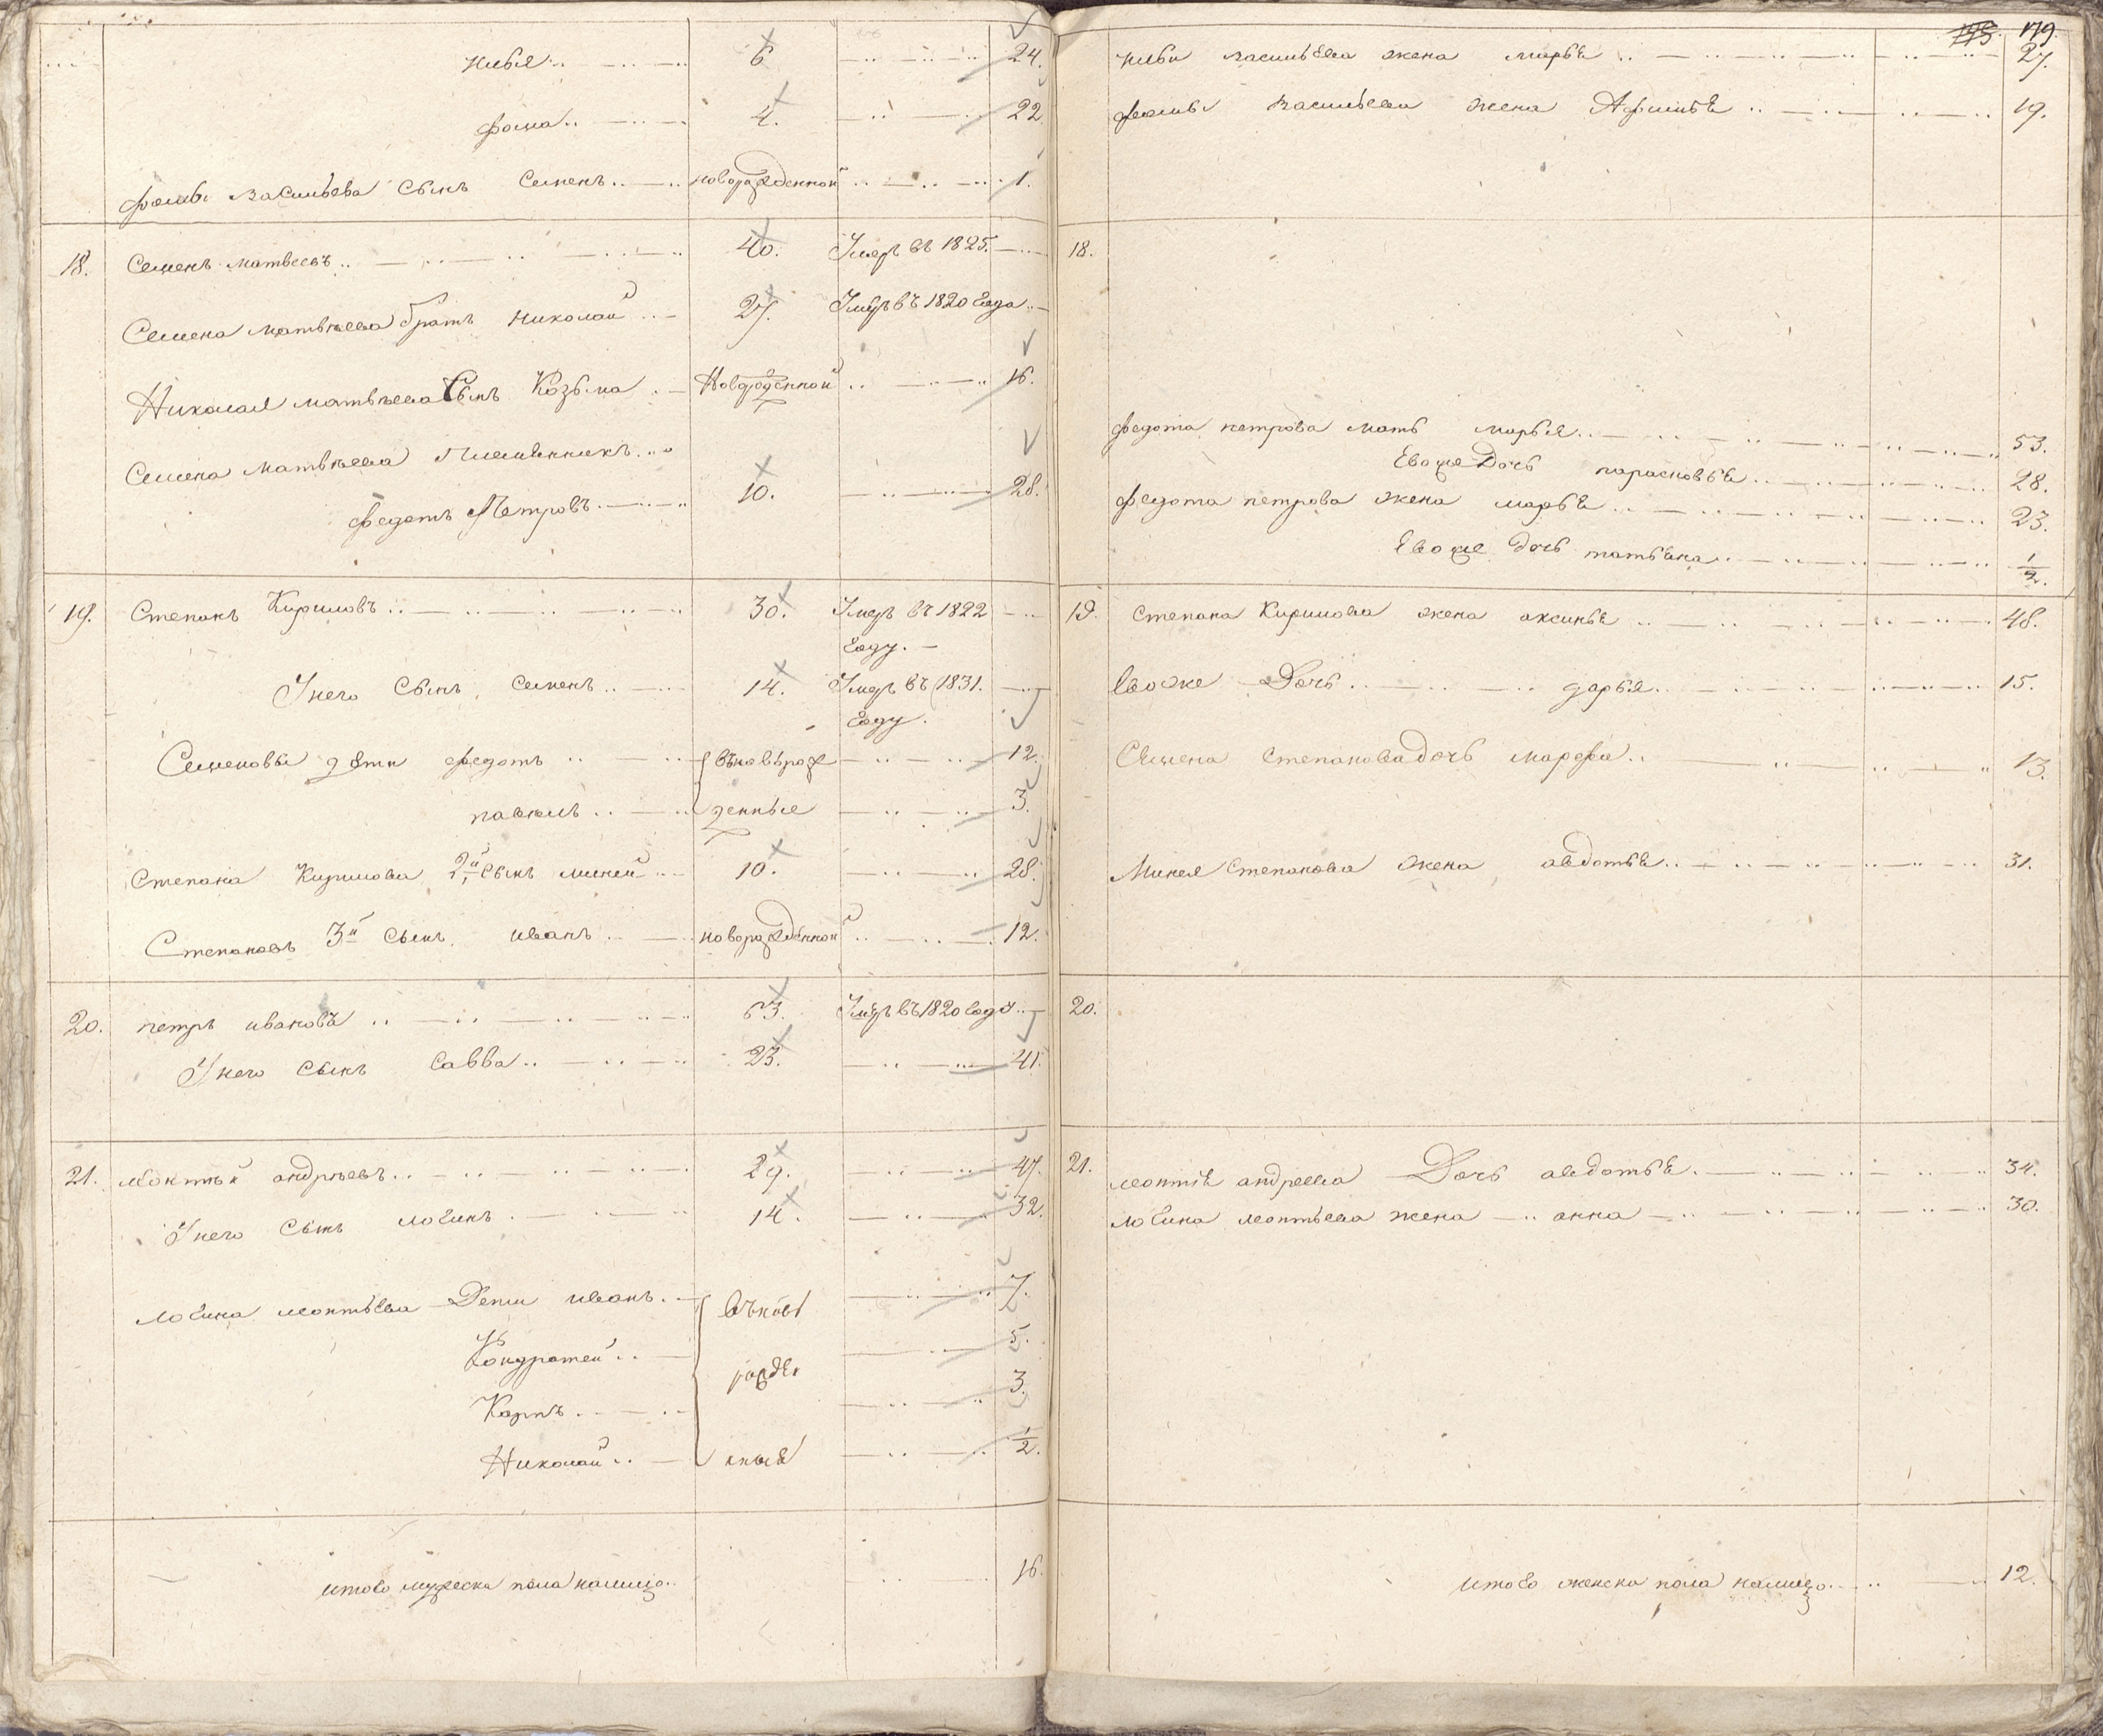 179.
илья 6 24.
фома 4. 22.
фомы васильева сынъ Семенъ новорожденной 1.
18. Семенъ матвеевъ 40. Умеръ въ 1825.
Семена матвѣева братъ николай 27. Умеръ въ 1820 года
Николая матвѣева Сынъ Козьма Новорожденной 16.
Семена матвѣева Племянникъ
федотъ Петровъ 10. 28.
19. Степанъ Кириловъ 30. Умеръ въ 1822
году.
У него Сынъ Семенъ 14. Умеръ въ 1831.
году.
Семеновы дѣти федотъ вьноврож 12.
павелъ денные 3.
Степана Кирилова 2й сынъ миней 10. 28.
Степановъ 3й сынъ иванъ новорожденной 12.
20. петръ ивановъ 63. Умеръ въ 1820 году
У него Сынъ Савва 23. 41.
21. леонтьй андрѣевъ 29. 47.
У него Сынъ логинъ 14. 32.
логина леонтьева Дети иванъ вьновь 7.
Кондратей 5.
рожде
Карпъ 3.
Николай ныя 1/2.
итого мужеска пола налицо 16.
ильи васильева жена марья 27.
фомы васильева жена 19.
18.
федота петрова мать марья 53.
Евоже Дочь парасковья 28.
федота петрова жена марья 23.
Евоже дочь татьяна 1/2.
19. Степана Кирилова жена аксинья 48.
Евоже Дочь дарья 15.
Семена степанова дочь марфа 13.
Минея Степанова жена авдотья 31.
20.
21. леонтья андреева Дочь авдотья 34.
логина леонтьева жена анна 30.
итого женска пола налицо 12.